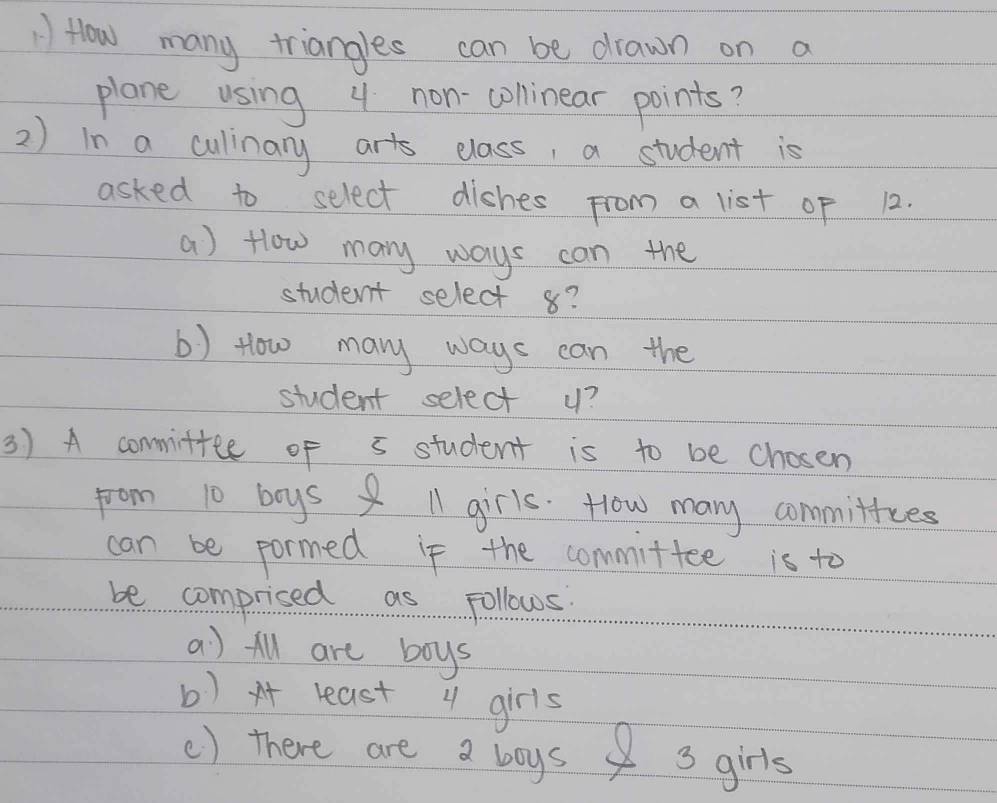 1.) How many triangles can be drawn on a
plane using 4 non-collinear points?
2) In a culinary arts class, a student is
asked to select dishes from a list of 12.
a.) How many ways can the
student select 8?
b.) How many ways can the
student select 4?
3.) A committee of 5 student is to be chosen
from 10 boys & 11 girls. How many committees
can be formed if the committee is to
be comprised as follows:
a.) All are boys
b.) At least 4 girls
c.) There are 2 boys & 3 girls